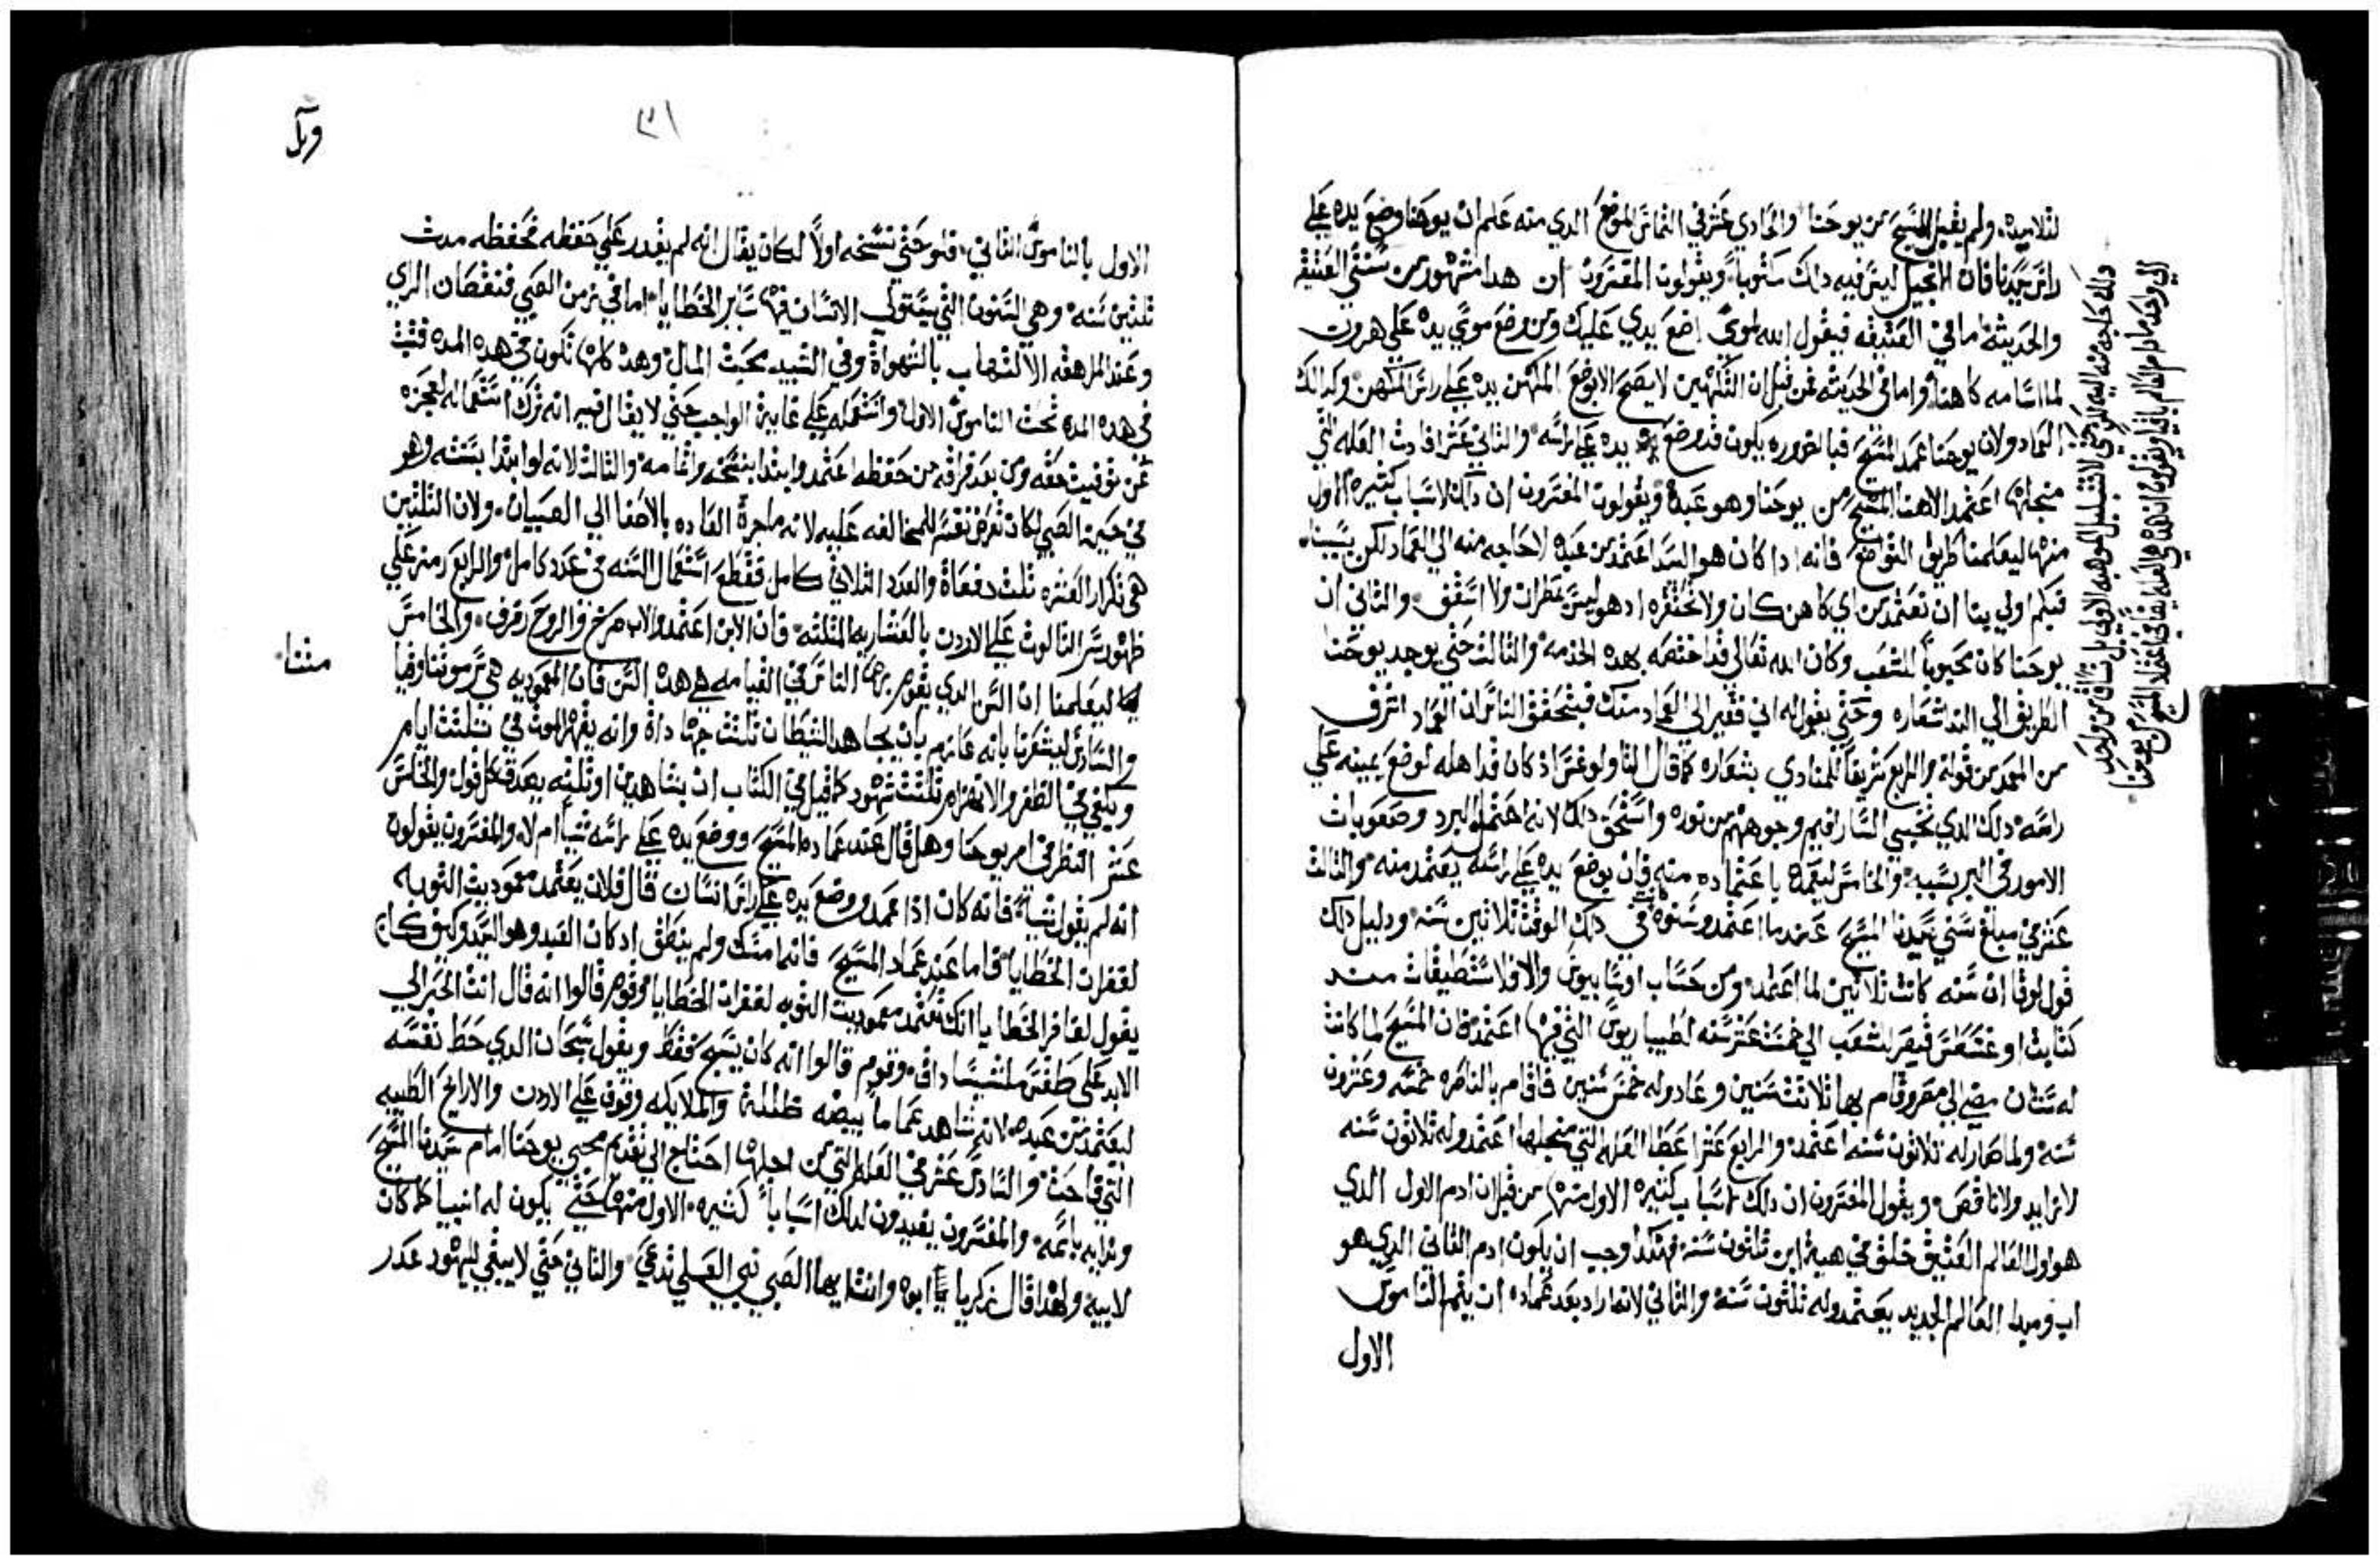 لتلاميده ولم يقبل المسيح من يوحنا والحادي عشر في التماس الموضع الدي منه علم ان يوحنا وضع يده علي
راس سيدنا فان الانجيل ليس فيه دلك مكتوبا ويقولون المفسرون ان هدا مشهور من سنتي العتيقه
والحديثه اما في العتيقه فيقول الله لموسي اضع يدي عليك ومن وضع موسي يده علي هرون
لما اسامه كاهنا واما في الحديثه فمن قبل ان التكهين لا يصح الا بوضع المكهن يده علي راس المتكهن وكدالك
العماد ولان يوحنا عمد المسيح فبالضروره يكون قد وضع يده علي راسه والثاني عشر افادت العله التي
منجلها اعتمد الاهنا المسيح من يوحنا وهو عبده ويقولون المفسرون ان دلك لاسباب كثيره الاول
منها ليعلمنا طريق التواضع فانه ادا كان هو السيد اعتمد من عبده لا حاجه منه الي العماد لكن بسببنا
فبكم اولي بنا ان نعتمد من اي كاهن كان ولا نحتقره اد هو ليس بمطران ولا اسقف والثاني ان
يوحنا كان محبوبا للشعب وكان الله تعالي قد اختصه بهده الخدمه والثالث حتي يوجد يوحنا
الطريق الي الند شعاره وحتي يقول له اني فقير الي العماد منك فيتحقق الناس ان العماد اشرف
من المعمد من قوله والرابع تشريفا للمنادي بشعاره كما قال الثاولوغس اد كان قد اهله لوضع يمينه علي
راسه دلك الدي تختبي السارافيم وجوههم من نوره واستحق دلك لانه احتمل البرد وصعوبات
الامور في البر بسببه والخامس ليعمده باعتماده منه فان بوضع يده علي راسه يعتمد منه والثالث
عشر في مبلغ سني سيدنا المسيح عندما اعتمد وسنوه كانت في دلك الوقت ثلاثين سنه ودليل دلك
قول لوقا ان سنه كانت ثلاثين لما اعتمد ومن حساب اوسابيوس والافلاسنطيقات مند
كتابت اوغسطس قيصر للشعب الي خمسة عشر سنه لطيباريوس التي فيها اعتمد فان المسيح لما كانت
له سنتان مضي الي مصر وقام بها ثلاثت سنين وعاد وله خمس سنين فاقام بالناصره خمسه وعشرون
سنه ولما صار له ثلاثون سنه اعتمد والرابع عشر اعطا العله التي منجلها اعتمد وله ثلاثون سنه
لا زايد ولا ناقص ويقول المفسرون ان دلك لاسباب كثيره الاول منها من قبل ان ادم الاول الدي
هو اول العالم العتيق خلق في هية ابن ثلثون سنه فهكدا وجب ان يكون ادم الثاني الدي هو
اب ومبدا العالم الجديد يعتمد وله ثلثون سنه والثاني لانه اراد بعد عماده ان يتمم الناموس
الاول
ودلك لا حاجه منه اليه
الي واحد مادام العالم باقيا ويقولون ان هده هي العله
٣١
وبل
الاول بالناموس الثاني فلو حتي نسخه اولا لكان يقال انه لم يقدر علي حفظه فحفظه مدت
ثلثين سنه وهي السنون التي يستولي الانسان فيها ساير الخطايا اما في زمن الصبي فنقصان الراي
وعند المراهقه الالتهاب بالشهواة وفي الشيب محبة المال وهده كلها تكون في هده المده فثبت
في هده المده تحت الناموس الاول واستعمله علي غاية الواجب حتي لا يقال فيه انه ترك استعماله لعجزه
عن توفيت حقه ومن بعد فراقه من حفظه اعتمد وابتدا بنسخه واتمامه والثالث لانه لو ابتدا بسنته وهو
في حين الصبي لكان تعرض نفسه للمخالفه عليه لانه ما جرة العاده بالاصغا الي الصبيان ولان الثلثين
هي تكرار العشره ثلث دفعاة والعدد الثلاثي كامل فقطع استعمال السنه في عدد كامل والرابع رمز علي
ظهور سر الثالوث علي الاردن بالعشاريه المثلثه فان الابن اعتمد والاب صرخ والروح رفرف والخامس
ليعلمنا ان السن الدي يقوم بها الناس في القيامه هي هده السن فان المعموديه هي رسم موتنا وقيا
متنا
والسادس ليشعرنا بانه عازم بان يجاهد الشيطان ثلثت جهاداة وانه يقهر الموت في ثلثت ايام
ويكفي في الظفر والانهزام ثلثت شهود كما قيل في الكتاب ان بشاهدين او ثلثه يصدق كل قول والخامس
عشر النظر في امر يوحنا وهل قال عند عماده المسيح ووضع يده علي راسه شيا ام لا والمفسرون يقولون
انه لم يقول شيا فانه كان ادا عمد ووضع يده علي راس انسان قال فلان يعتمد معموديت التوبه
لغفران الخطايا فاما عند عماد المسيح فانه امسك ولم ينطق اد كان العبد وهو السيد وكيف كان
يقول لغافر الخطايا انك تعتمد معموديت التوبه لغفران الخطايا وقوم قالوا انه قال انت الحبر الي
الابد علي طقس ملشيساداق وقوم قالوا انه كان يسبح فقط ويقول سبحان الدي حط نفسه
ليعتمد من عبده لانه شاهد غماما بيضه ظللة والملايكه وقوف علي الاردن والارايح الطيبه
التي فاحت والسادس عشر في العله التي من اجلها احتاج الي تقدم مجي يوحنا امام سيدنا المسيح
وندايه باسمه والمفسرون يفيدون لدلك اسبابا كثيره الاول منها حتي يكون له انبيا كما كان
لابيه ولهدا قال زكريا ابوه وانت ايها الصبي نبي العلي تدعي والثاني حتي لا يبقي لليهود عدر